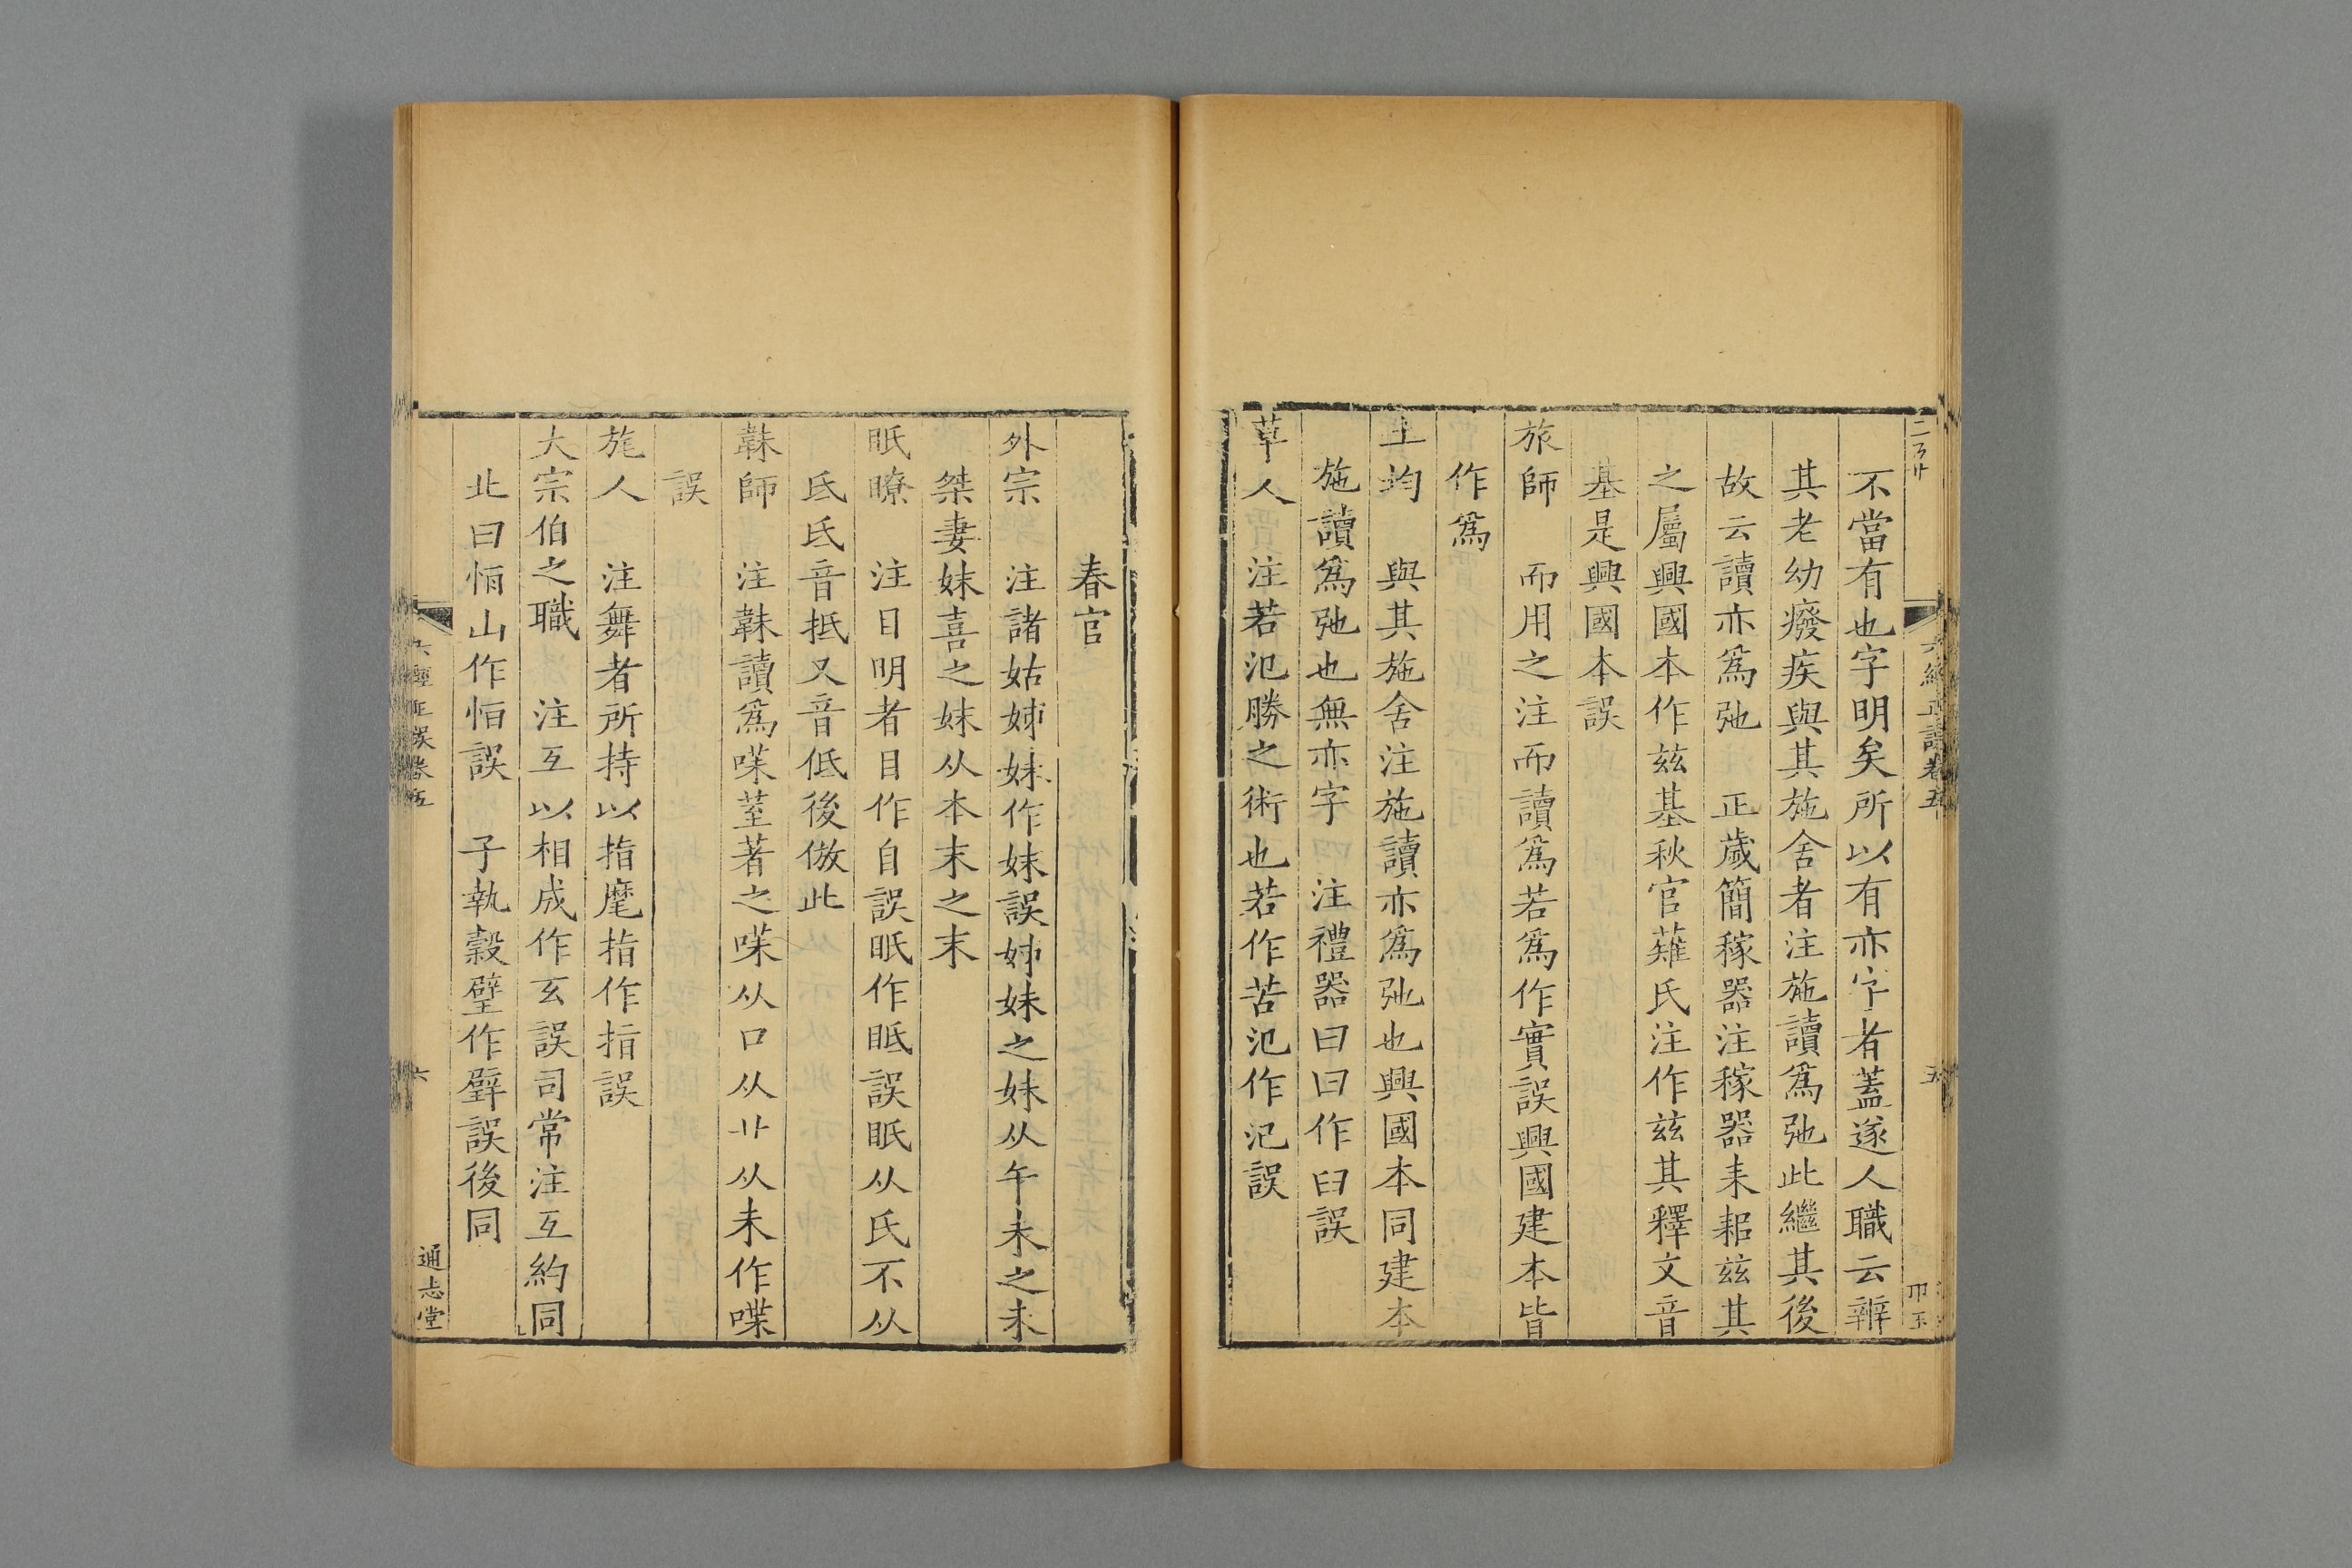 六經正誤卷五
五
不當有也字明矣所以有亦字者蓋遂人職云辨
其老幼癈疾與其施舍者注施讀爲弛此繼其後
故云讀亦爲弛　正歲簡稼器注稼器耒耜兹其
之屬興國本作兹基秋官薙氏注作兹其釋文音
基是興國本誤
旅師　而用之注而讀爲若爲作實誤興國建本皆
作爲
土均　與其施舍注施讀亦爲弛也興國本同建本
施讀爲弛也無亦字　注禮器曰曰作臼誤
草人　注若氾勝之術也若作苦氾作汜誤
春官
外宗　注諸姑姊妹作妺誤姊妹之妹从午未之未
桀妻妺喜之妺从本末之末
眂瞭　注目明者目作自誤眂作眡誤眂从氏不从
氐氐音抵又音低後倣此
韎師　注韎讀爲㗱莖著之㗱从口从廿从未作喋
誤
旄人　注舞者所持以指麾指作㨖誤
大宗伯之職　注互以相成作玄誤司常注互約同
北曰恆山作恒誤　子執穀璧作壁誤後同
六經正誤卷五
六
通志堂